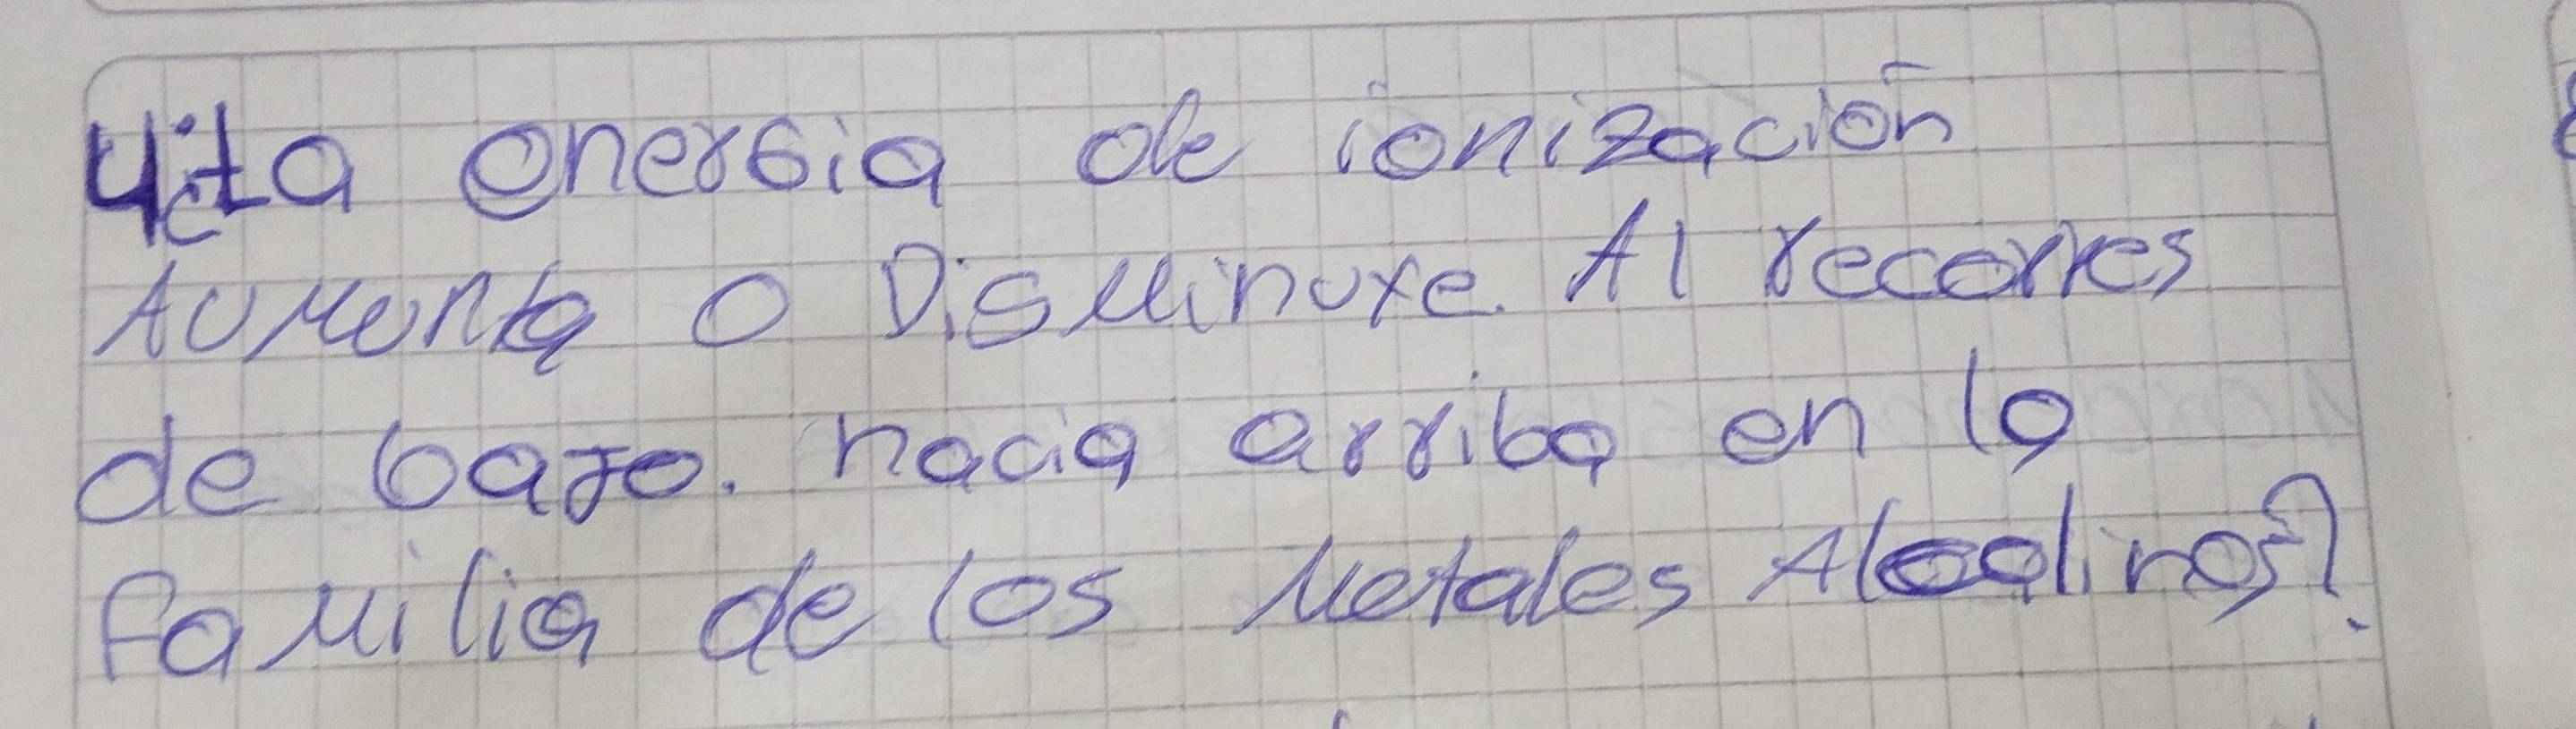 4¿La energia de ionización
Aumenta o Disminuye. Al recorres
de bajo. hacia arriba en la
familia de los Metales Alcalinos?